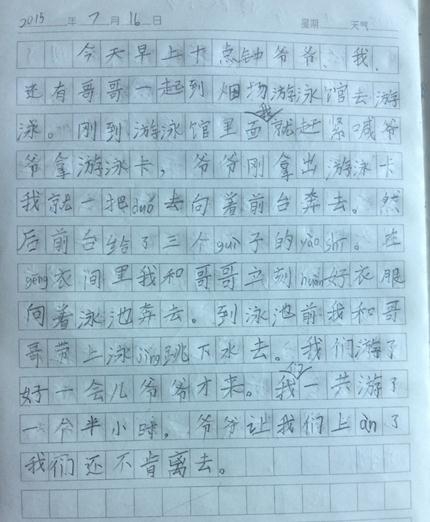 2015 年 7 月 16 日 星期 天气
今天早上十点钟爷爷、我、
还有哥哥一起到烟场游泳馆去游
泳。刚到游泳馆里面我就赶紧喊爷
爷拿游泳卡,爷爷刚拿出游泳卡
我就一把duó去向着前台奔去。然
后前台给了三个guì子的yào shi。在
gēng衣间里我和哥哥立刻huàn好衣服
向着泳池奔去。到泳池前我和哥
哥带上泳jìng跳下水去。我们游了
好一会儿爷爷才来。我们一共游了
一个半小时。爷爷让我们上àn了
我们还不肯离去。